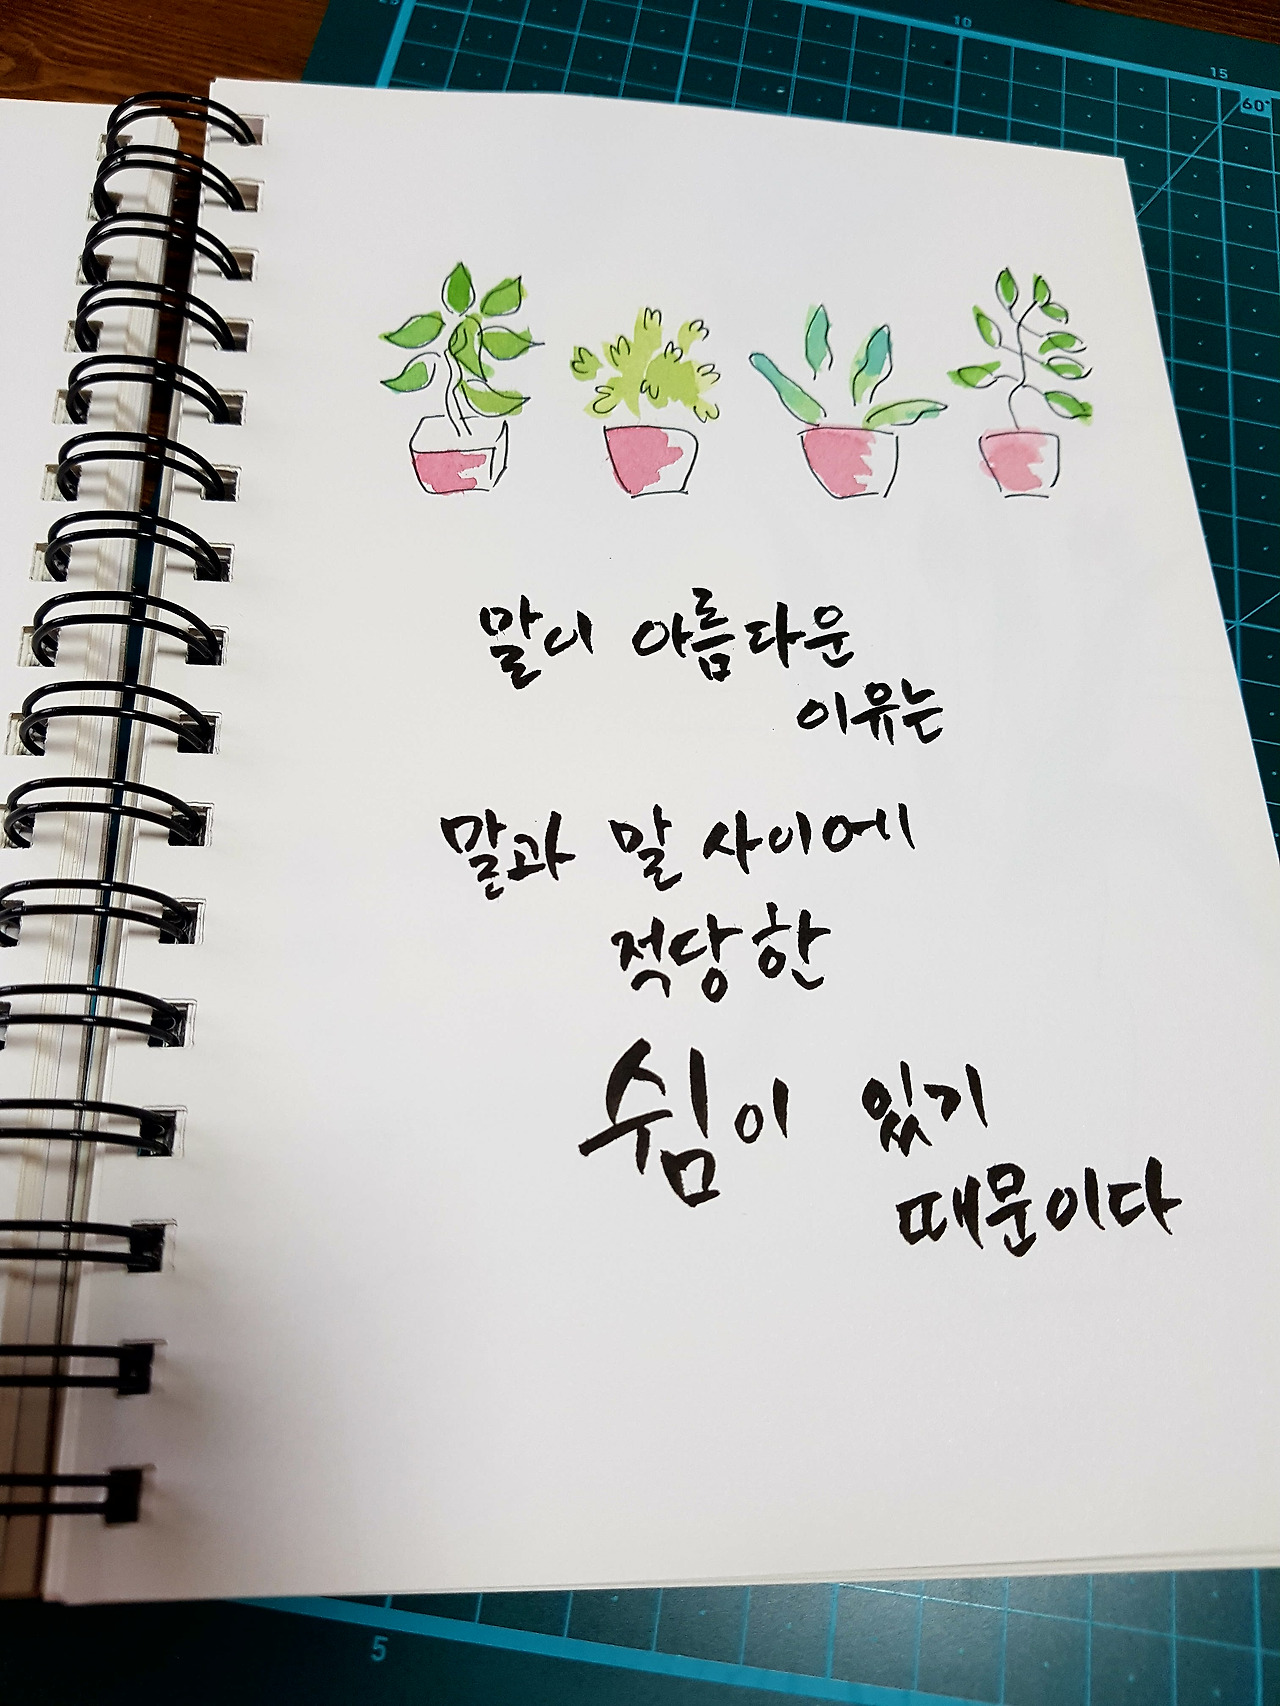 10
15
60°
말이 아름다운
이유는
말과 말 사이에
적당한
쉼이 있기
때문이다
5